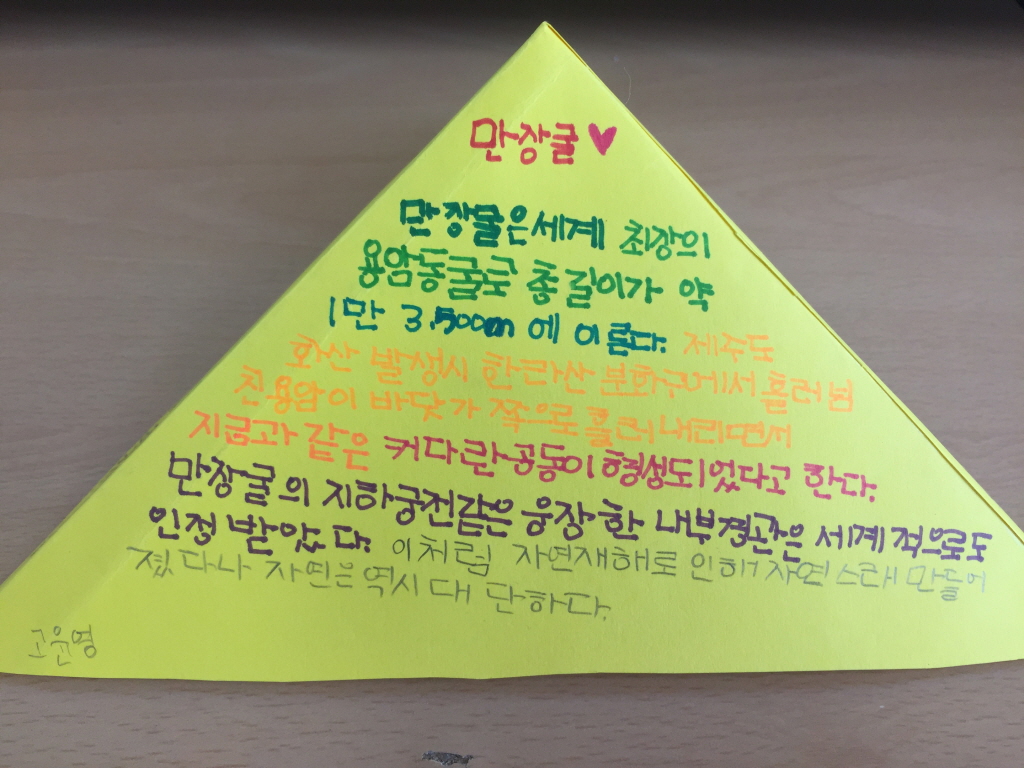 만장굴♥
만장굴은세계 최장의
용암동굴로 총 길이가 약
1만 3,500m에 이른다. 제주도
화산 발생시 한라산 분화구에서 흘러넘
친용암이 바닷가 쪽으로 흘러내리면서
지금과 같은 커다란공동이 형성되었다고 한다.
만장굴의 지하궁전같은 웅장한 내부경관은 세계적으로도
인정 받았다. 이처럼 자연재해로 인해 자연스래 만들어
졌다나 자연은역시 대단하다.
고윤명